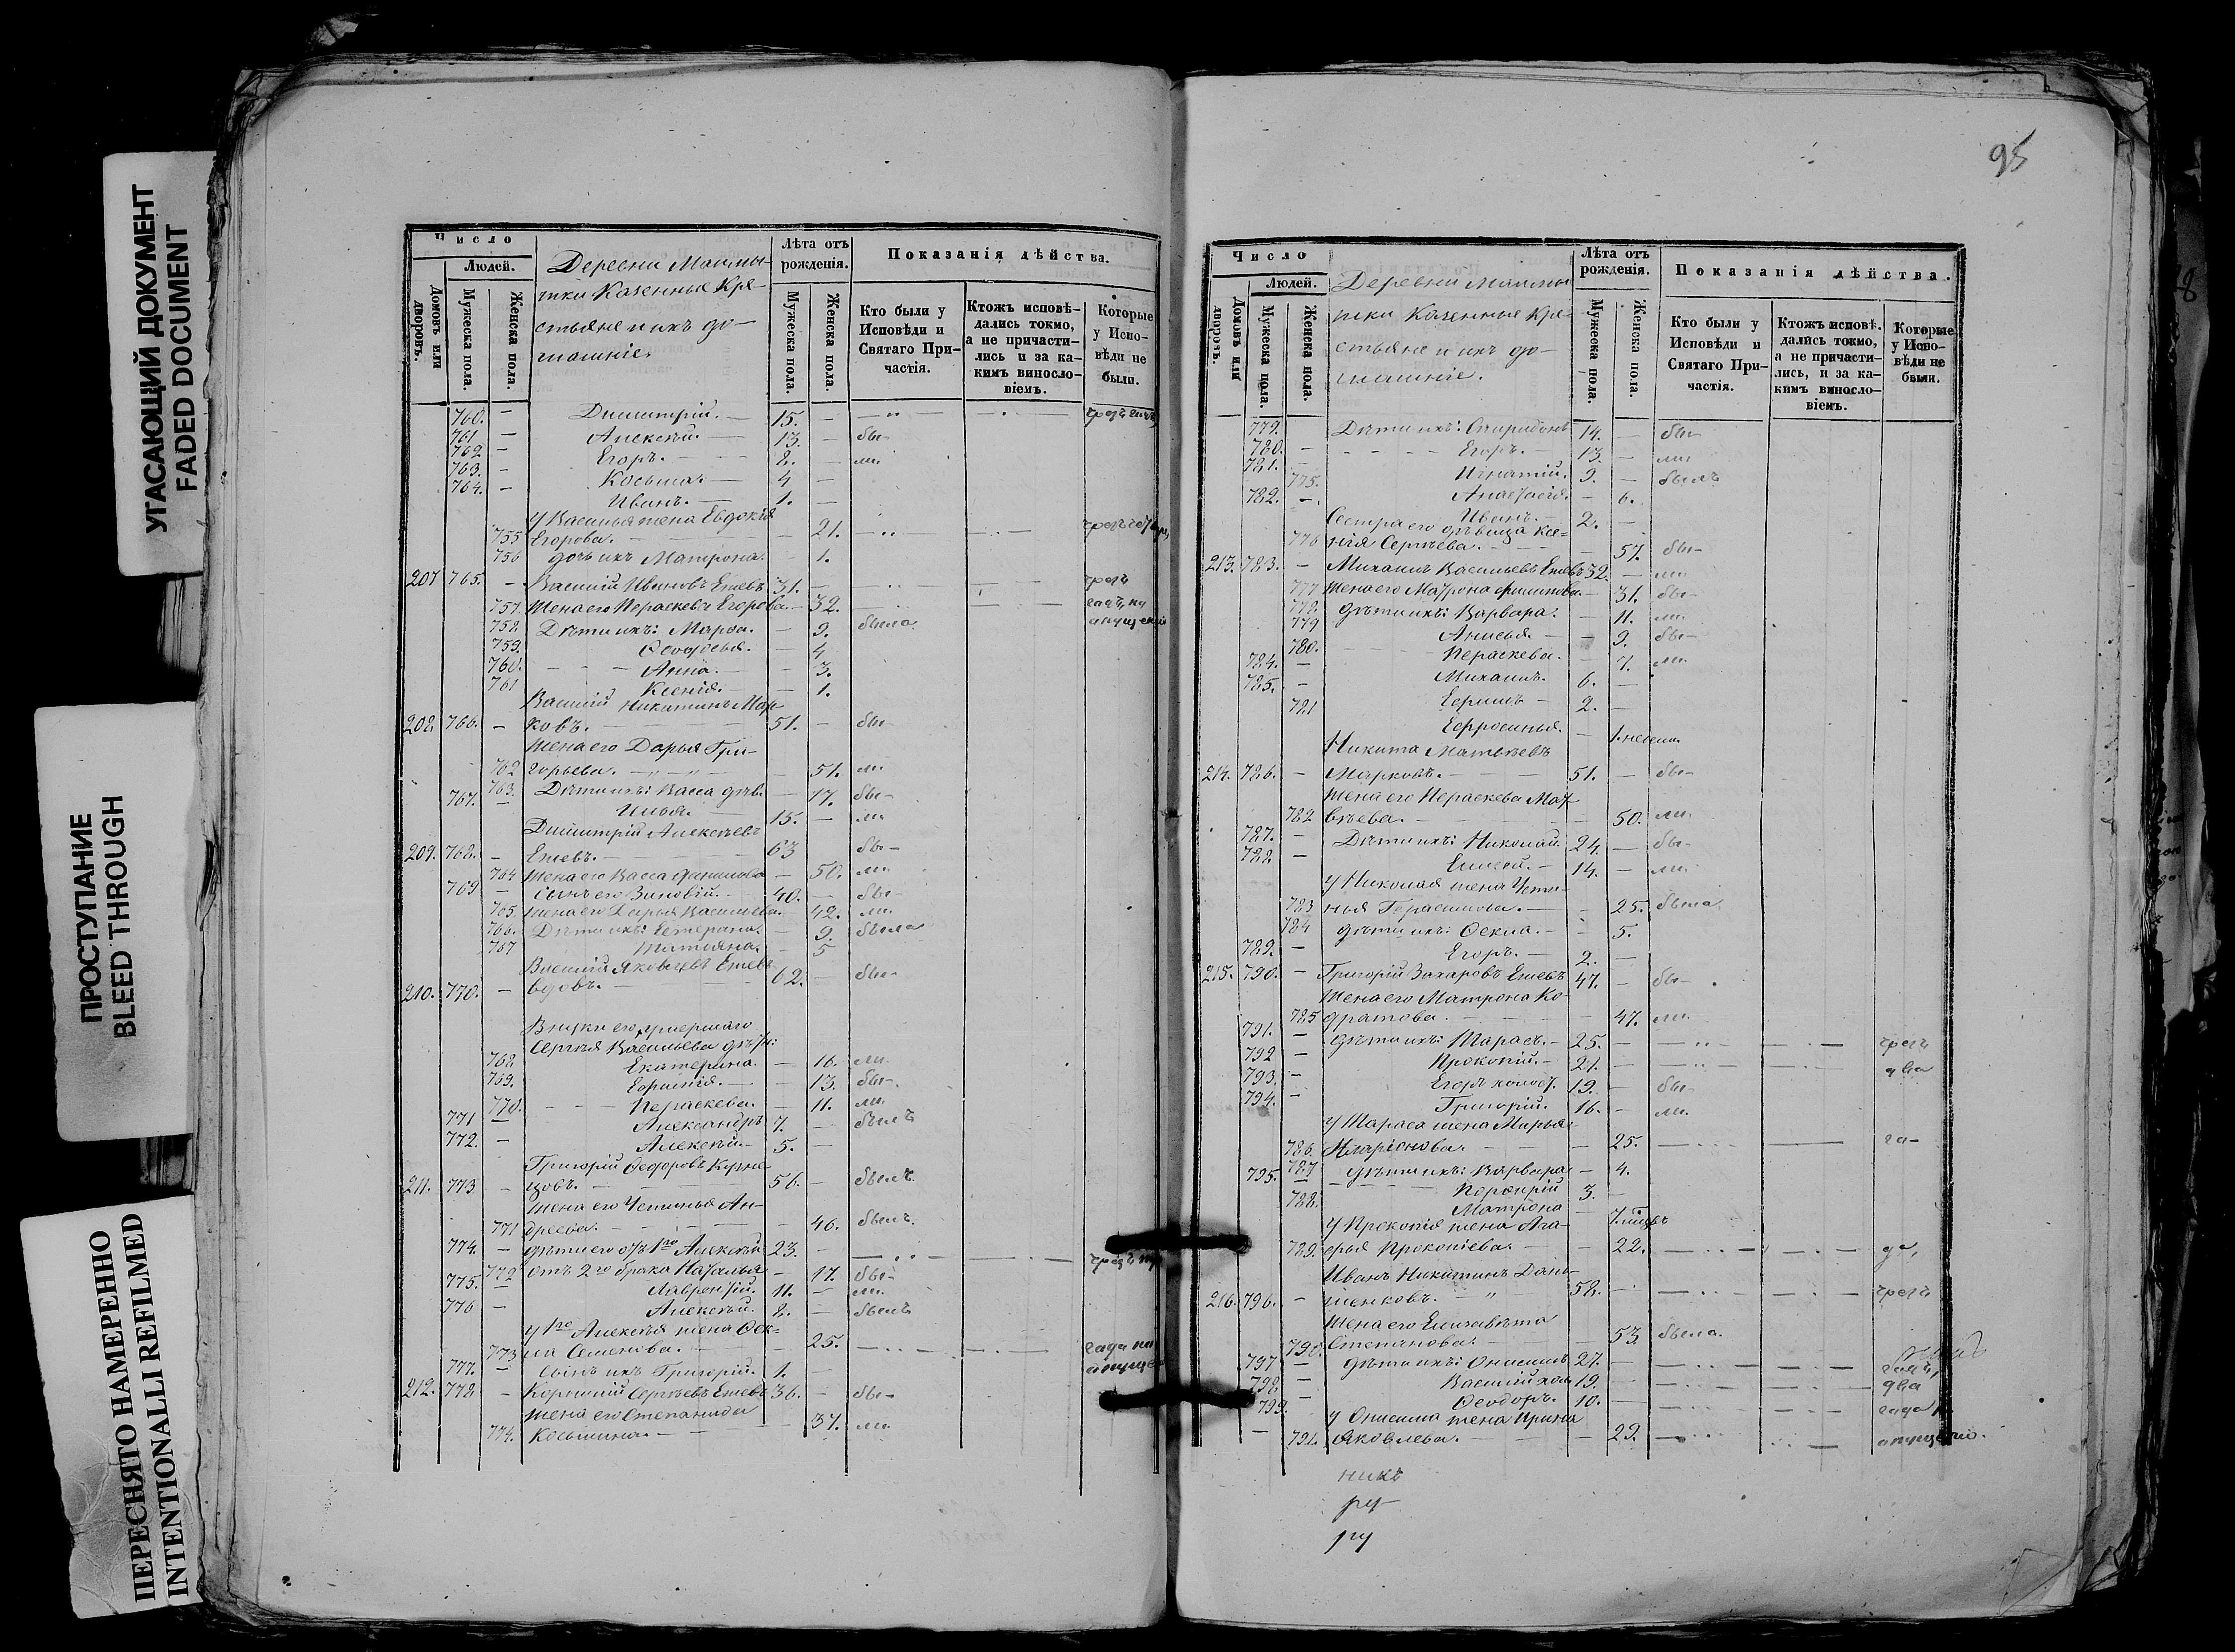 УГАСАЮЩИЙ ДОКУМЕНТ
FADED DOCUMENT
ПРОСТУПАНИЕ
BLEED THROUGH
ПЕРЕСНЯТО НАМЕРЕННО
INTENTIONALLI REFILMED
Число
Людей.
Домовъ или дворовъ.
Мужеска пола.
Женска пола.
Деревни
тки Казенные Кре-
стьяне и ихъ до-
машніе.
Лѣта отъ рожденія.
Мужеска пола.
Женска пола.
Показанія дѣйства.
Кто были у Исповѣди и Святаго При-частія.
Ктожъ исповѣ-дались токмо, а не причасти-лись и за ка-кимъ винослo-віемъ.
Которые у Испо-вѣди не были.
760. — Димитрій. — 15. —
761 — Алексѣй. — 13. — бы-
762 — Егоръ. — 8. — ли.
763. — Косьма. — 4 —
764. — Иванъ. — 1. —
У Василья жена Евдокія
755 Егорова. — 21.
756 дочь ихъ Матрона. — 1.
207 765. — Василій Ивановъ Ежевъ 31. —
757. Жена его Пераскева Егорова — 32.
758 Дѣти ихъ: Марѳа. — 9. была
759. Ѳеодосья. — 4
760. — Анна. — 3.
761 Ксенія. — 1.
Василій Никитинъ Мар-
208. 766. — ковъ. — 51. — бы-
Жена его Дарья Гри-
762 горьева. — 51. ли.
763. Дѣти ихъ: Васса дѣв. — 17. бы-
767. — Илья. — 15. — ли
Димитрій Алексѣевъ
209. 768. — Ежевъ. — 63 бы-
764 Жена его Васса Филипова — 50. ли.
769 — Сынъ его Зиновій. — 40. — бы-
765. Жена его Дарья Васильева. — 42. ли.
766. Дѣти ихъ: — 9. была
767 Татіана. — 5
Василій Яковлевъ Ежевъ
210. 770. — вдовъ. — 62. бы-
Внуки его, умершаго
Сергѣя Васильева дѣти:
768. Екатерина. — 16. ли.
769. Евфимія. — 13. бы-
770. Пераскева. — 11. ли.
771 — Александръ 7. — былъ
772. — Алексѣй — 5. —
Григорій Ѳеодоровъ Кузне-
211. 773 — цовъ. — 56. — былъ.
Жена его Устинья Ан-
771 дреева. — 46. былъ.
774. — дѣти его отъ 1го Алексѣй 23. —
772 отъ 2го брака Наталья — 17. бы-
775. — Лаврентій. 11. — ли.
776 — Алексѣй. 8. — былъ
у 1го Алексѣя жена Ѳек-
773 ла Семенова. — 25. года по
777. — Сынъ ихъ Григорій. 1. —
212. 778 — Корнилій Сергѣевъ Ежевъ 36. — бы-
Жена его Степанида
774. Косьмина. — 37. ли.
95
Число
Людей.
Домовъ или дворовъ.
Мужеска пола.
Женска пола.
Деревни
тки Казенные Кре-
стьяне и ихъ до-
машніе.
Лѣта отъ рожденія.
Мужеска пола.
Женска пола.
Показанія дѣйства.
Кто были у Исповѣди и Святаго При-частія.
Ктожъ исповѣ-дались токмо, а не причасти-лись, и за ка-кимъ винослo-віемъ.
Которые у Испо-вѣди не были.
779. Дѣти ихъ: Спиридонъ 14. — бы-
780. — Егоръ. — 13. — ли
781. — Игнатій. 9. — былъ
775. Анастасія. — 6.
782. — Иванъ. — 2. —
Сестра его дѣвица Ксе-
776 нія Сергѣева. — 57. бы-
213. 783. — Михаилъ Васильевъ Ежевъ 32. — ли.
777 Жена его Матрона Филипова — 31. бы-
778. дѣти ихъ: Варвара. — 11. ли.
779 Анисья. — 9. бы-
780. Пераскева. — 7. ли.
784. — Михаилъ. 6. —
785. — Ефимъ — 2. —
781 Ефросинья. — 1. недѣли.
Никита Матвѣевъ
214. 786. — Марковъ. — 51. — бы-
Жена его Пераскева Мат-
782 вѣева. — 50. ли.
787. — Дѣти ихъ: Николай. 24. — бы-
788 — Елисей. — 14. — ли.
у Николая жена Усти-
783 нья Герасимова. — 25. была
784 дѣти ихъ: Ѳекла. — 5.
789. — Егоръ. — 2. —
215. 790. — Григорій Захаровъ Ежевъ 47. — бы-
Жена его Матрона Ко-
785 дратова. — 47. ли.
791. — дѣти ихъ: Тарасъ. — 25. —
792 — Прокопій. — 21. — два
793. — Егоръ холост. 19. — бы-
794. — Григорій. 16. — ли.
У Тараса жена Марья
786. Иларіонова. — 25. го-
787 дѣти ихъ: Варвара — 4.
795. — Порфирій 3. —
788. Матрона —
У Прокопія жена Ага-
789. ѳья Прокопіева. — 22. да,
Иванъ Никитинъ Дань-
216. 796. — шенковъ. — 58. —
Жена его Елизавета
790. Степанова. — 53 была.
797 — дѣти ихъ: Онисимъ 27. —
798 — Василій хол 19. — два
799. — Ѳеодоръ. 10. — года
у Онисима жена Ирина
791. Яковлева. — 29. —
никъ
ру
ру